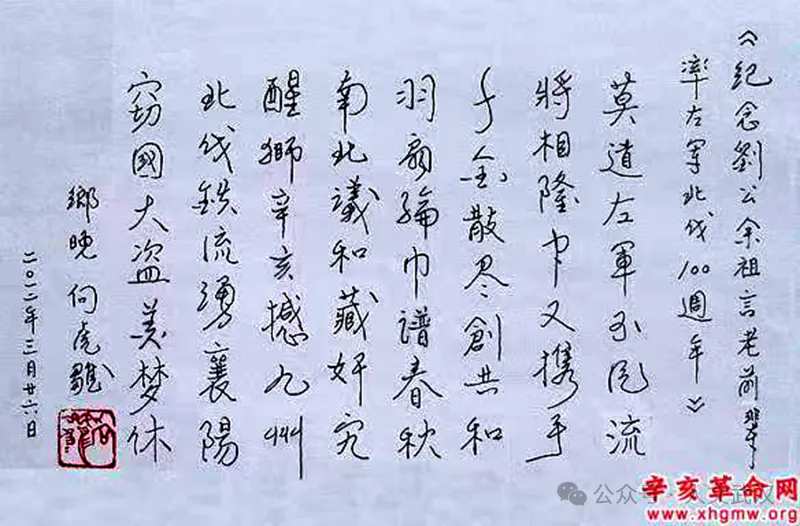 《紀念劉公余祖言老前輩
率左軍北伐100週年》
莫道左軍不风流
將相隆中又携手
千金散尽創共和
羽扇綸巾譜春秋
南北議和藏奸宄
醒獅辛亥撼九州
北伐鉄流湧襄陽
窃國大盗美梦休
鄉晚 何虎雛
二〇一二年三月廿六日
公众号
辛亥革命网
www.xhgmw.org